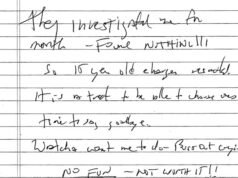 They investigated me for
month – Found NOTHING!!!
So 15 year old charges resulted.
It is a treat to be able to choose ones
time to say goodbye.
Watcha want me to do – Burst out crying
NO FUN – NOT WORTH IT!!